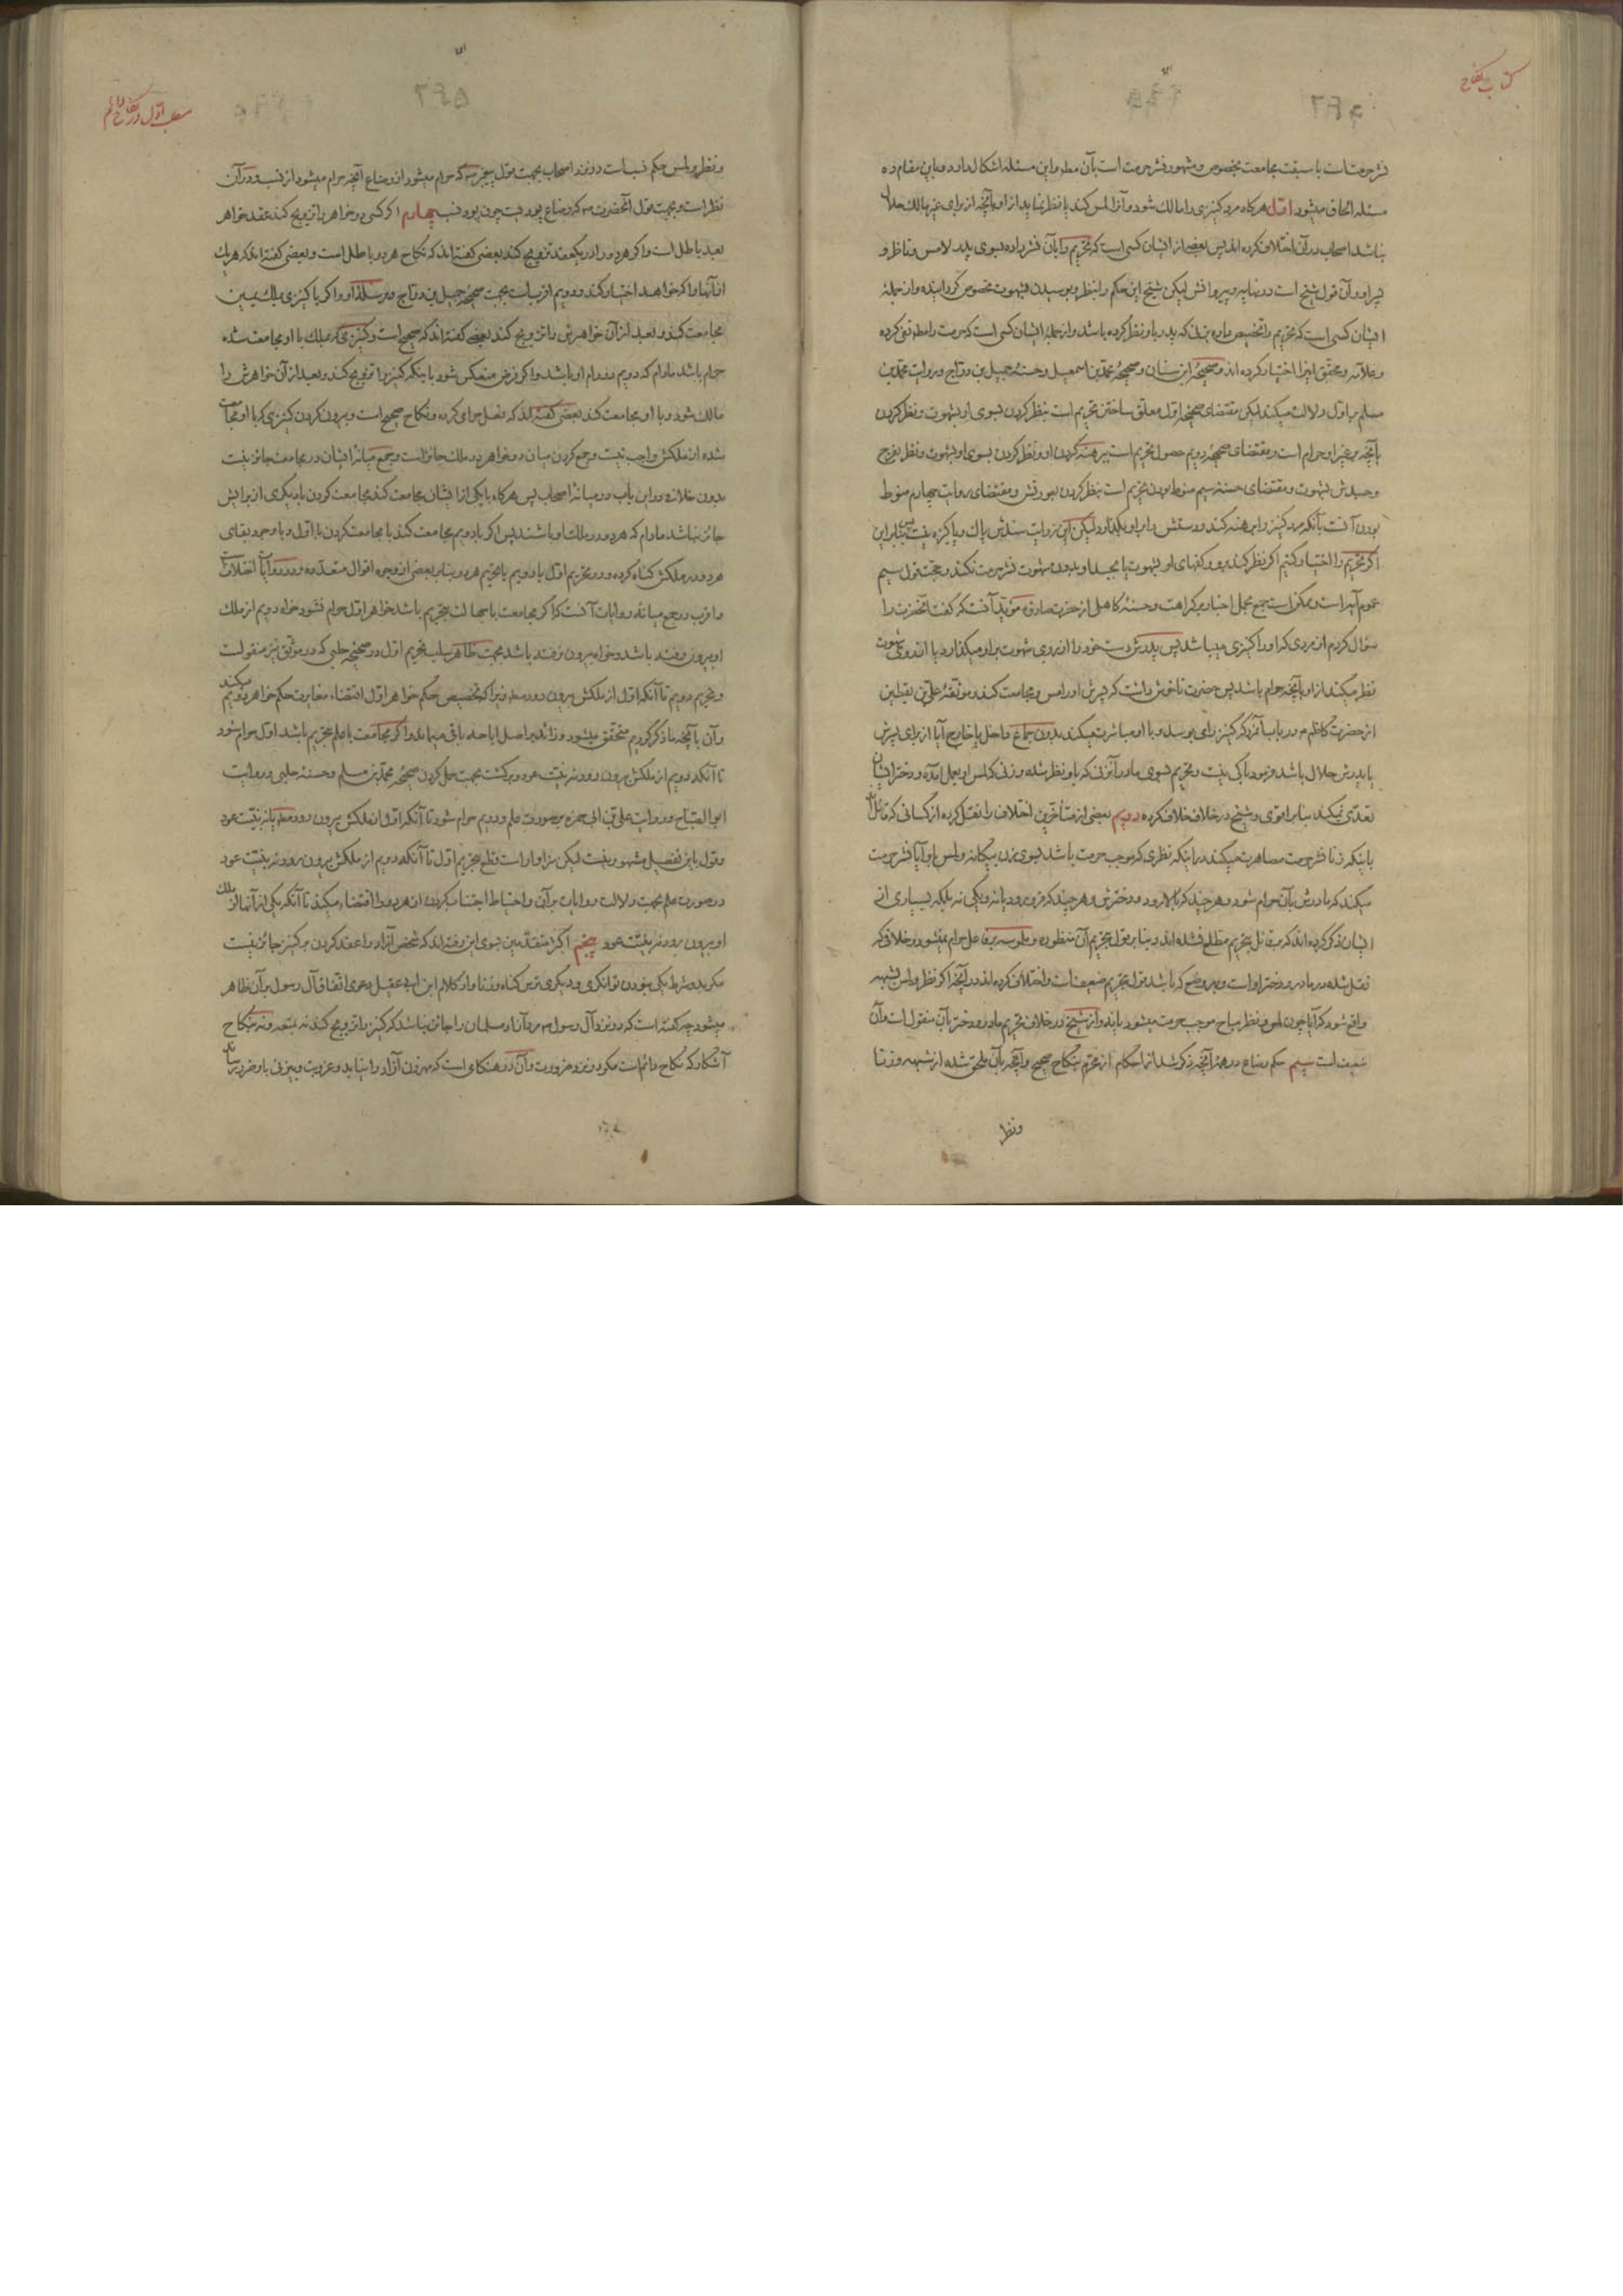 کتاب نکاح
نشر حرمتست با سبقت مجامعت بخصوص و مشهور نشر حرمت است بآن مطلقا و این مسئله اشکال دارد و باین مقام ده
مسئله الحاق میشود اوّل هرگاه مرد کنیزی را مالک شود و آنرا لمس کند یا نظر نماید از او بآنچه از برای غیر مالک حلال
نباشد اصحاب در آن اختلاف کرده اند پس بعضی از ایشان کسی است که تحریم را بآن نشر داده بسوی پدر لامس و ناظر و
پسر او و آن قول شیخ است در نهایه و پیروانش لیکن شیخ این حکم را بنظر و بوسیدن بشهوت مخصوص گردانیده و از جملهٔ
ایشان کسی است که تحریم را تخصیص داده بزنی که پدر باو نظر کرده باشد و از جمله ایشان کسی است که حرمت را مطلقا نفی کرده
و علامه و محقق اینرا اختیار کرده اند و صحیحهٔ ابن سنان و صحیحهٔ محمد بن اسمعیل و حسنهٔ جمیل بن دراج و روایت محمد بن
مسلم بر اوّل دلالت میکند لیکن مقتضای صحیحهٔ اوّل معلق ساختن تحریم است بنظر کردن بسوی او بشهوت و نظر کردن
بآنچه بر غیر او حرام است و مقتضای صحیحهٔ دویم حصول تحریم است ببرهنه کردن او و نظر کردن بسوی او بشهوت و نظر بفرج
و جسدش بشهوت و مقتضای حسنهٔ سیم منوط بودن تحریم است بنظر کردن بعورتش و مقتضای روایت چهارم منوط
بودن آنست بآنکه مرد کنیز را برهنه کند و دستش را بر او بگذارد لیکن این روایت سندش پاک و پاکیزه نیست پس بنابراین
اگر تحریم را اختیار کنیم اگر نظر کند برو و کفهای او بشهوت یا بجسد او بدون شهوت نشر حرمت نکند و حجت قول سیم
عموم آیه است و ممکن است جمع بحمل اخبار بر کراهت و حسنهٔ کاهلی از حضرت صادق ع مؤید آنست که گفت آنحضرت را
سؤال کردم از مردی که او را کنیزی میباشد پس پدرش دست خود را از روی شهوت بر او میگذارد یا از روی شهوت
نظر میکند از او بآنچه حرام باشد پس حضرت ناخوش داشت که پسرش او را مس و مجامعت کند و موثقهٔ علی بن یقطین
از حضرت کاظم ع در باب آنمرد که کنیز را می بوسد و با او مباشرت میکند بدون جماع داخل یا خارج آیا از برای پسرش
یا پدرش حلال باشد فرمود باکی نیست و تحریم بسوی مادر آنزنی که باو نظر شده و زنی که لمس او بعمل آمده و دختر ایشان
تعدی نمیکند بنابر اقوی و شیخ در خلاف خلاف کرده دویم بعضی از متأخرین اختلاف را نقل کرده از کسانی که قائل اند
باینکه زنا نشر حرمت مصاهرت میکند در اینکه نظری که موجب حرمت باشد بسوی زن بیگانه و لمس او آیا نشر حرمت
میکند که مادرش بآن حرام شود و هر چند که بالا رود و دخترش و هر چند که فرو رود یا نه و یکی نه بلکه بسیاری از
ایشان ذکر کرده اند که بر قائل بتحریم مطلع نشده اند و بنا بر قول بتحریم آن منظوره و ملموسه بر فاعل حرام نمیشود و خلافی که
نقل شده در مادر و دختر او است و بهر وضع که باشد قول بتحریم ضعیفست و اختلاف کرده اند در آنچه اگر نظر و لمس بشبهه
واقع شود که آیا چون لمس و نظر مباح موجب حرمت میشود یا نه و از شیخ در خلاف تحریم مادر و دختر بآن منقول است و آن
ضعیف است سیم حکم رضاع در همهٔ آنچه ذکر شد از احکام از تحریم بنکاح صحیح و آنچه بآن ملحق شده از شبهه و زنا
ونظر
مطلب اوّل در نکاح دائم
ونظر و لمس حکم نسب است در نزد اصحاب بجهت قول پیغمبر ص که حرام میشود از رضاع آنچه حرام میشود از نسب و در آن
نظر است و بجهت قول آنحضرت ص که رضاع پود نیست چون پود نسب چهارم اگر کسی دو خواهر را تزویج کند عقد خواهر
بعد باطل است و اگر هر دو را در یکعقد تزویج کند بعضی گفته اند که نکاح هر دو باطل است و بعضی گفته اند که هر یک
از آنها را که خواهد اختیار کند و دویم اقرب است بجهت صحیحهٔ جمیل بن دراج و مرسلهٔ او و اگر با کنیزی بملک یمین
مجامعت کند و بعد از آن خواهرش را تزویج کند بعضی گفته اند که صحیح است و کنیزی که بملک با او مجامعت شده
حرام باشد مادام که دویم در دام او باشد و اگر فرض منعکس شود باینکه کنیز را تزویج کند و بعد از آن خواهرش را
مالک شود و با او مجامعت کند بعضی گفته اند که فعل حرامی کرده و نکاح صحیح است و بیرون کردن کنیزی که با او مجامعت
شده از ملکش واجب نیست و جمع کردن میان دو خواهر در ملک جائز است و جمع میانهٔ ایشان در مجامعت جائز نیست
بدون خلاف در این باب در میانهٔ اصحاب پس هرگاه با یکی از ایشان مجامعت کند مجامعت کردن با دیگری از برایش
جائز نباشد مادام که هر دو در ملک او باشند پس اگر با دویم مجامعت کند با مجامعت کردن با اوّل و با وجود بقای
هر دو در ملکش گناه کرده و در تحریم اوّل یا دویم یا تحریم هر دو بنابر بعضی از وجوه اقوال متعدده و در روایات اختلاف است
و اقرب در جمع میانهٔ روایات آنست که اگر مجامعت با جهالت بتحریم باشد خواهر اوّل حرام نشود خواه دویم از ملک
او بیرون رفته باشد و خواه بیرون نرفته باشد بجهت ظاهر سلب تحریم اوّل در صحیحهٔ حلبی که در موثق نیز منقولست
و تحریم دویم تا آنکه اوّل از ملکش بیرون رود مطلقا زیرا که تخصیص حکم خواهر اوّل اقتضاء مغایرت حکم خواهر دویم میکند
و آن بآنچه ما ذکر کردیم متحقق میشود و زائد بر اصل اباحه باقی میماند و اگر مجامعت با علم بتحریم باشد اوّل حرام شود
تا آنکه دویم از ملکش بیرون رود نه بنیت عود و برگشت بجهت حمل کردن صحیحهٔ محمد بن مسلم و حسنهٔ حلبی و روایت
ابو الصباح و روایت علی بن ابی حمزه بر صورت علم و دویم حرام شود تا آنکه اوّل از ملکش بیرون رود مطلقا یا نه بنیت عود
و قول باین تفصیل مشهور نیست لیکن سزاوار است و قطع بتحریم اوّل تا آنکه دویم از ملکش بیرون رود نه بنیت عود
در صورت علم بجهت دلالت روایات بر آن و احتیاط اجتناب کردن از هر دو را اقتضاء میکند تا آنکه یکی از آنها از ملک
او بیرون رود نه بنیت عود پنجم اکثر متقدمین بسوی این رفته اند که شخص آزاد را عقد کردن بر کنیز جائز نیست
مگر بدو شرط یکی نبودن توانگری و دیگری ترس گناه و زنا و از کلام ابن ابی عقیل دعوی اتفاق آل رسول بر آن ظاهر
میشود چه گفته است که در نزد آل رسول ص مرد آزاد مسلمان را جائز نباشد که کنیز را تزویج کند نه بمتعه و نه بنکاح
آشکار که نکاح دائم است مگر در نزد ضرورت و آن در هنگامی است که مهر زن آزاد را نیابد و عزوبت و بیزنی باو ضرر رساند